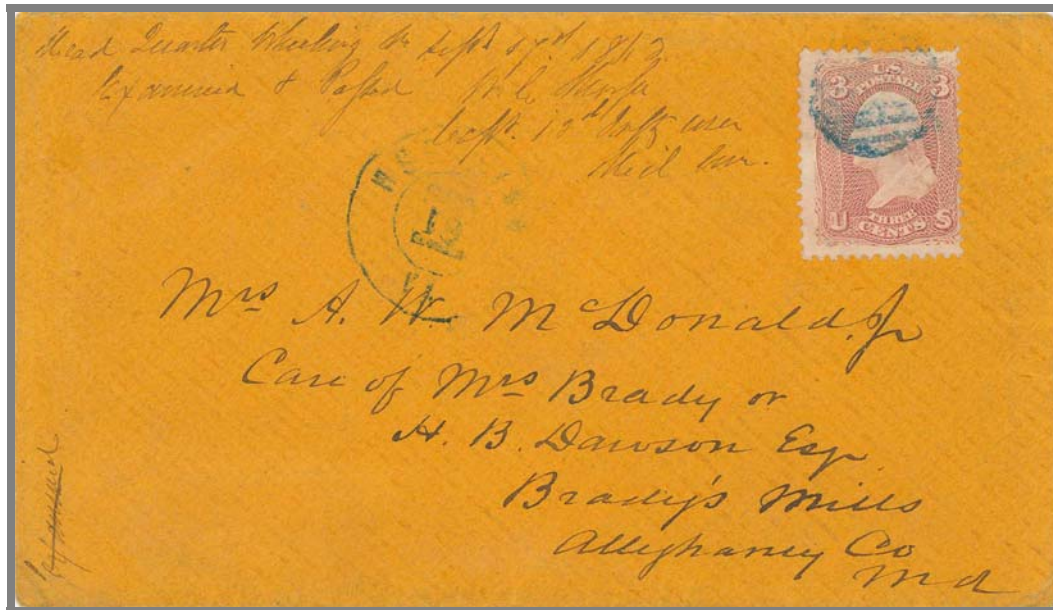 Head Quarter Wheeling Va Sept 17th 186
Examined & Passed
Capt. 10th Infty
3 US 3
POSTAGE
U THREE S
CENTS
Mrs A. W. McDonald, Jr
Care of Mrs Brady or
H. B. Dawson Esqr
Brady's Mills
Alleghaney Co
Md
Examined